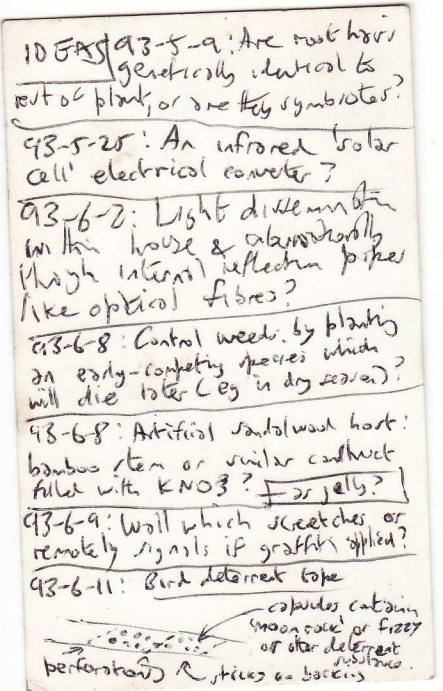 IDEAS 93-5-9: Are root hairs
genetically identical to
rest of plant, or are they symbiotes?
93-5-25: An infrared 'solar
cell' electrical converter?
93-6-2: Light dissemination
within house & laboratorally
through internal reflection pipes
like optical fibres?
93-6-8: Control weeds by planting
an early-competing species which
will die later (eg in dry season)?
93-6-8: Artificial sandalwood host:
bamboo stem or similar construct
filled with KNO3? as jelly?
93-6-9: Wall which screeches or
remotely signals if graffiti applied?
93-6-11: Bird deterrent tape
capsules contain
'moon rock' or fizzy
or other deterrent
substance.
perforations sticky backing